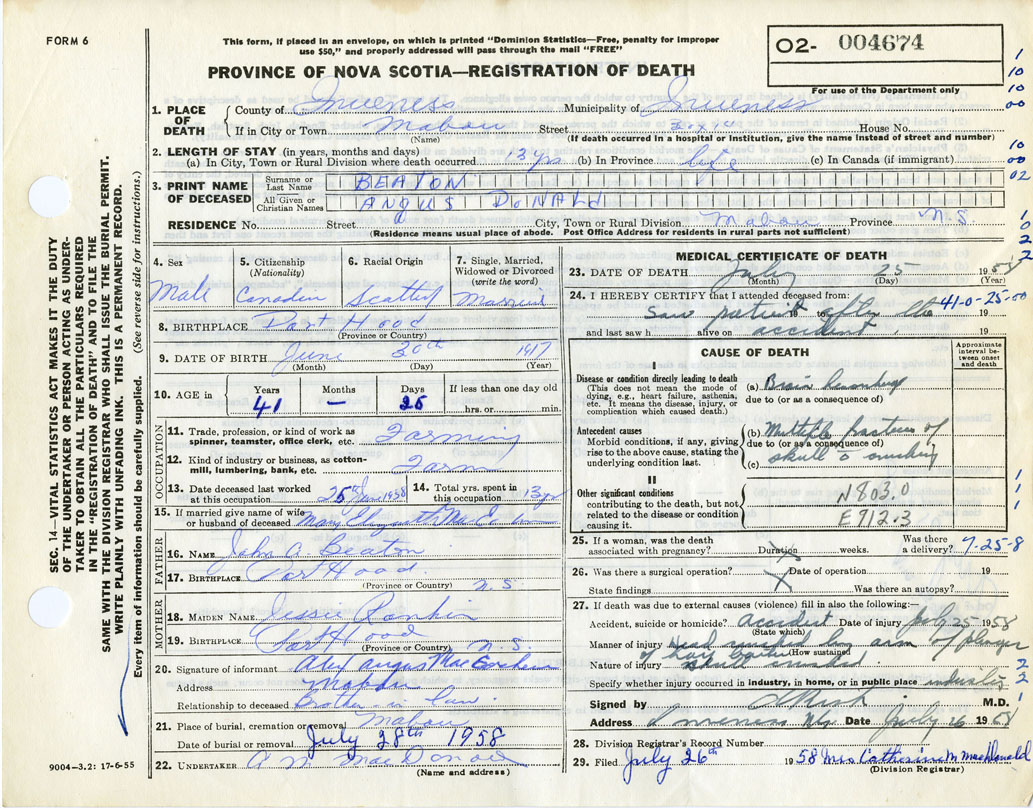 FORM 6
This form, if placed in an envelope, on which is printed "Dominion Statistics—Free, penalty for improper
use $50," and properly addressed will pass through the mail "FREE"
O2- 004674
For use of the Department only
PROVINCE OF NOVA SCOTIA—REGISTRATION OF DEATH
1. PLACE OF DEATH County of Inverness Municipality of Inverness
If in City or Town Mabou Street House No.
(Name) (If death occurred in a hospital or institution, give the name instead of street and number)
2. LENGTH OF STAY (in years, months and days)
(a) In City, Town or Rural Division where death occurred 13 yrs (b) In Province life (c) In Canada (if immigrant)
3. PRINT NAME OF DECEASED Surname or Last Name BEATON
All Given or Christian Names ANGUS DONALD
RESIDENCE No. Street City, Town or Rural Division Mabou Province N S
(Residence means usual place of abode. Post Office Address for residents in rural parts not sufficient)
4. Sex Male
5. Citizenship (Nationality) Canadian
6. Racial Origin
7. Single, Married, Widowed or Divorced (write the word) Married
8. BIRTHPLACE Port Hood
(Province or Country)
9. DATE OF BIRTH June 30th 1917
(Month) (Day) (Year)
10. AGE in Years 41 Months — Days 25 If less than one day old hrs. or min.
OCCUPATION
11. Trade, profession, or kind of work as spinner, teamster, office clerk, etc. Farming
12. Kind of industry or business, as cotton-mill, lumbering, bank, etc. Farm
13. Date deceased last worked at this occupation 25th 1958
14. Total yrs. spent in this occupation 13 yrs
15. If married give name of wife or husband of deceased Mary Elizabeth
FATHER
16. NAME John A. Beaton
17. BIRTHPLACE Port Hood N.S
(Province or Country)
MOTHER
18. MAIDEN NAME Jessie Rankin
19. BIRTHPLACE Port Hood N.S
(Province or Country)
20. Signature of informant Alex Angus MacEachern
Address Mabou
Relationship to deceased Brother in law
21. Place of burial, cremation or removal Mabou
Date of burial or removal July 28th 1958
22. UNDERTAKER A M MacDonald
(Name and address)
9004—3.2: 17-6-55
MEDICAL CERTIFICATE OF DEATH
23. DATE OF DEATH July 25 1958
(Month) (Day) (Year)
24. I HEREBY CERTIFY that I attended deceased from:
Saw patient 19 to after the 41-0-25-00
and last saw h alive on accident 19
CAUSE OF DEATH
Approximate interval between onset and death
I
Disease or condition directly leading to death
(This does not mean the mode of dying, e.g., heart failure, asthenia, etc. It means the disease, injury, or complication which caused death.)
(a) Brain
due to (or as a consequence of)
Antecedent causes
Morbid conditions, if any, giving rise to the above cause, stating the underlying condition last.
(b) Multiple fractures of
due to (or as a consequence of)
(c) skull
II
Other significant conditions
contributing to the death, but not related to the disease or condition causing it.
N803.0
E912.3
25. If a woman, was the death associated with pregnancy? Duration weeks. Was there a delivery? 7-25-8
26. Was there a surgical operation? Date of operation 19
State findings Was there an autopsy?
27. If death was due to external causes (violence) fill in also the following:—
Accident, suicide or homicide? Accident Date of injury July 25 1958
(State which)
Manner of injury Head crushed by arm of plunger
(How sustained)
Nature of injury skull crushed.
Specify whether injury occurred in industry, in home, or in public place industry
Signed by M.D.
Address Inverness N.S. Date July 26 1958
28. Division Registrar's Record Number
29. Filed July 26th 1958 Mrs Catherine M MacDonald
(Division Registrar)
SEC. 14—VITAL STATISTICS ACT MAKES IT THE DUTY
OF THE UNDERTAKER OR PERSON ACTING AS UNDER-
TAKER TO OBTAIN ALL THE PARTICULARS REQUIRED
IN THE "REGISTRATION OF DEATH" AND TO FILE THE
SAME WITH THE DIVISION REGISTRAR WHO SHALL ISSUE THE BURIAL PERMIT.
WRITE PLAINLY WITH UNFADING INK. THIS IS A PERMANENT RECORD.
Every item of information should be carefully supplied. (See reverse side for instructions.)
1
10
10
00
10
00
02
1
0
2
2
1
1
1
2
2
1